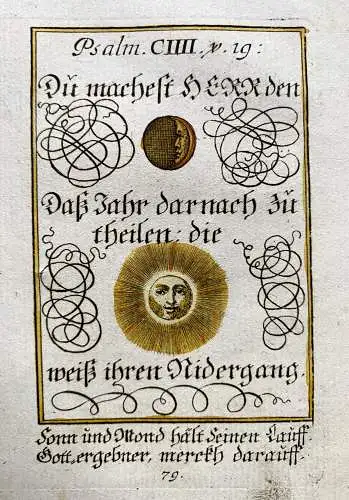 Psalm. CIIII. v. 19:
Du machest HERR den
Daß Jahr darnach zu
theilen; die
weiß ihren Nidergang.
Sonn und Mond hält seinen Lauff.
Gott ergebner, merckh darauff.
79.